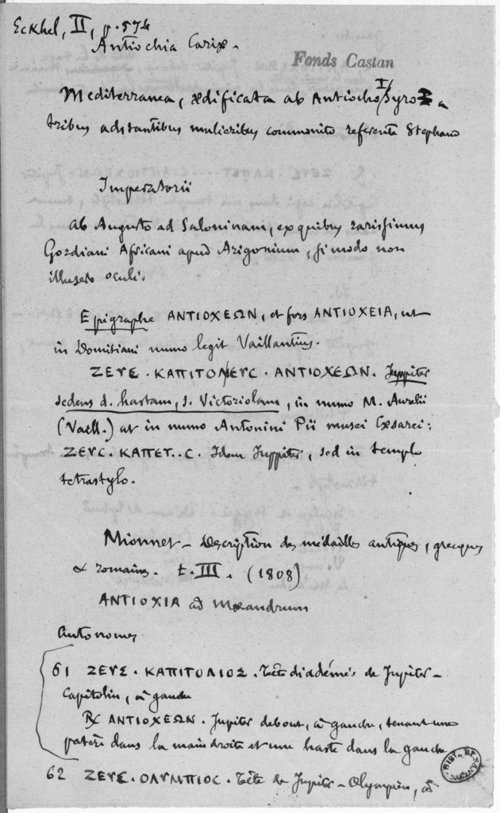 Eckhel, II, p. 574
Antiochia Cariæ -
Fonds Castan
Mediterranea, ædificata ab Antiocho I Syro a
tribus adstantibus mulieribus commonito referente Stephano
Imperatorii
Ab Augusto ad Saloninam, ex quibus rarissimus
Gordiani Africani apud Arigonium, si modo non
illusere oculi.
Epigraphe ΑΝΤΙΟΧΕΩΝ, et fors ΑΝΤΙΟΧΕΙΑ, ut
in Domitiani numo legit Vaillantius.
ΖΕΥΣ. ΚΑΠΙΤΟΛΙΕΥC. ΑΝΤΙΟΧΕΩΝ. Juppiter
sedens d. hastam, s. Victoriolam, in numo M. Aurelii
(Vaill.) at in numo Antonini Pii musei Cæsarei:
ΖΕΥC. ΚΑΠΕΤ..C. Idem Juppiter, sed in templo
tetrastylo.
Mionnet - Description des médailles antiques, grecques
& romaines. t. III. (1808)
ΑΝΤΙΟΧΙΑ ad Mæandrum
Autonomes
61 ΖΕΥΣ. ΚΑΠΙΤΟΛΙΟΣ. Tête diadémée de Jupiter-
Capitolin, à gauche
℞ ΑΝΤΙΟΧΕΩΝ. Jupiter debout, à gauche, tenant une
patère dans la main droite et une haste dans la gauche
62 ΖΕΥΣ. ΟΛΥΜΠΙΟΣ. Tête de Jupiter-Olympien, à